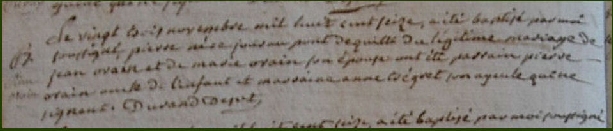 Le vingt trois novembre mil huit cent seize, a été baptisé par moi
soussigné, pierre né ce jour au pont dequilté du légitime mariage de
jean orain et de marie orain son épouse ont été parrain pierre
orain oncle de l'enfant et marraine anne légret son ayeule qui ne
signent. Durand Desert
cent seize, a été baptisé par moi soussigné